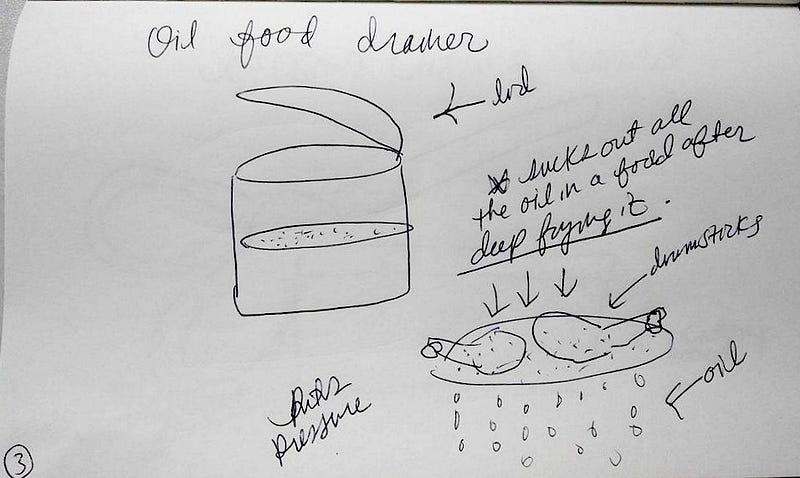 Oil food drainer
lid
* sucks out all
the oil in a food after
deep frying it.
drumsticks
oil
puts
pressure
3